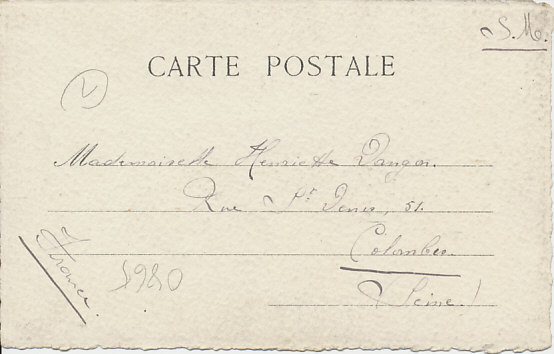 S.M.
CARTE POSTALE
V
Mademoiselle Henriette Dangon.
Rue St Denis, 51.
Colombes.
(Seine.)
France.